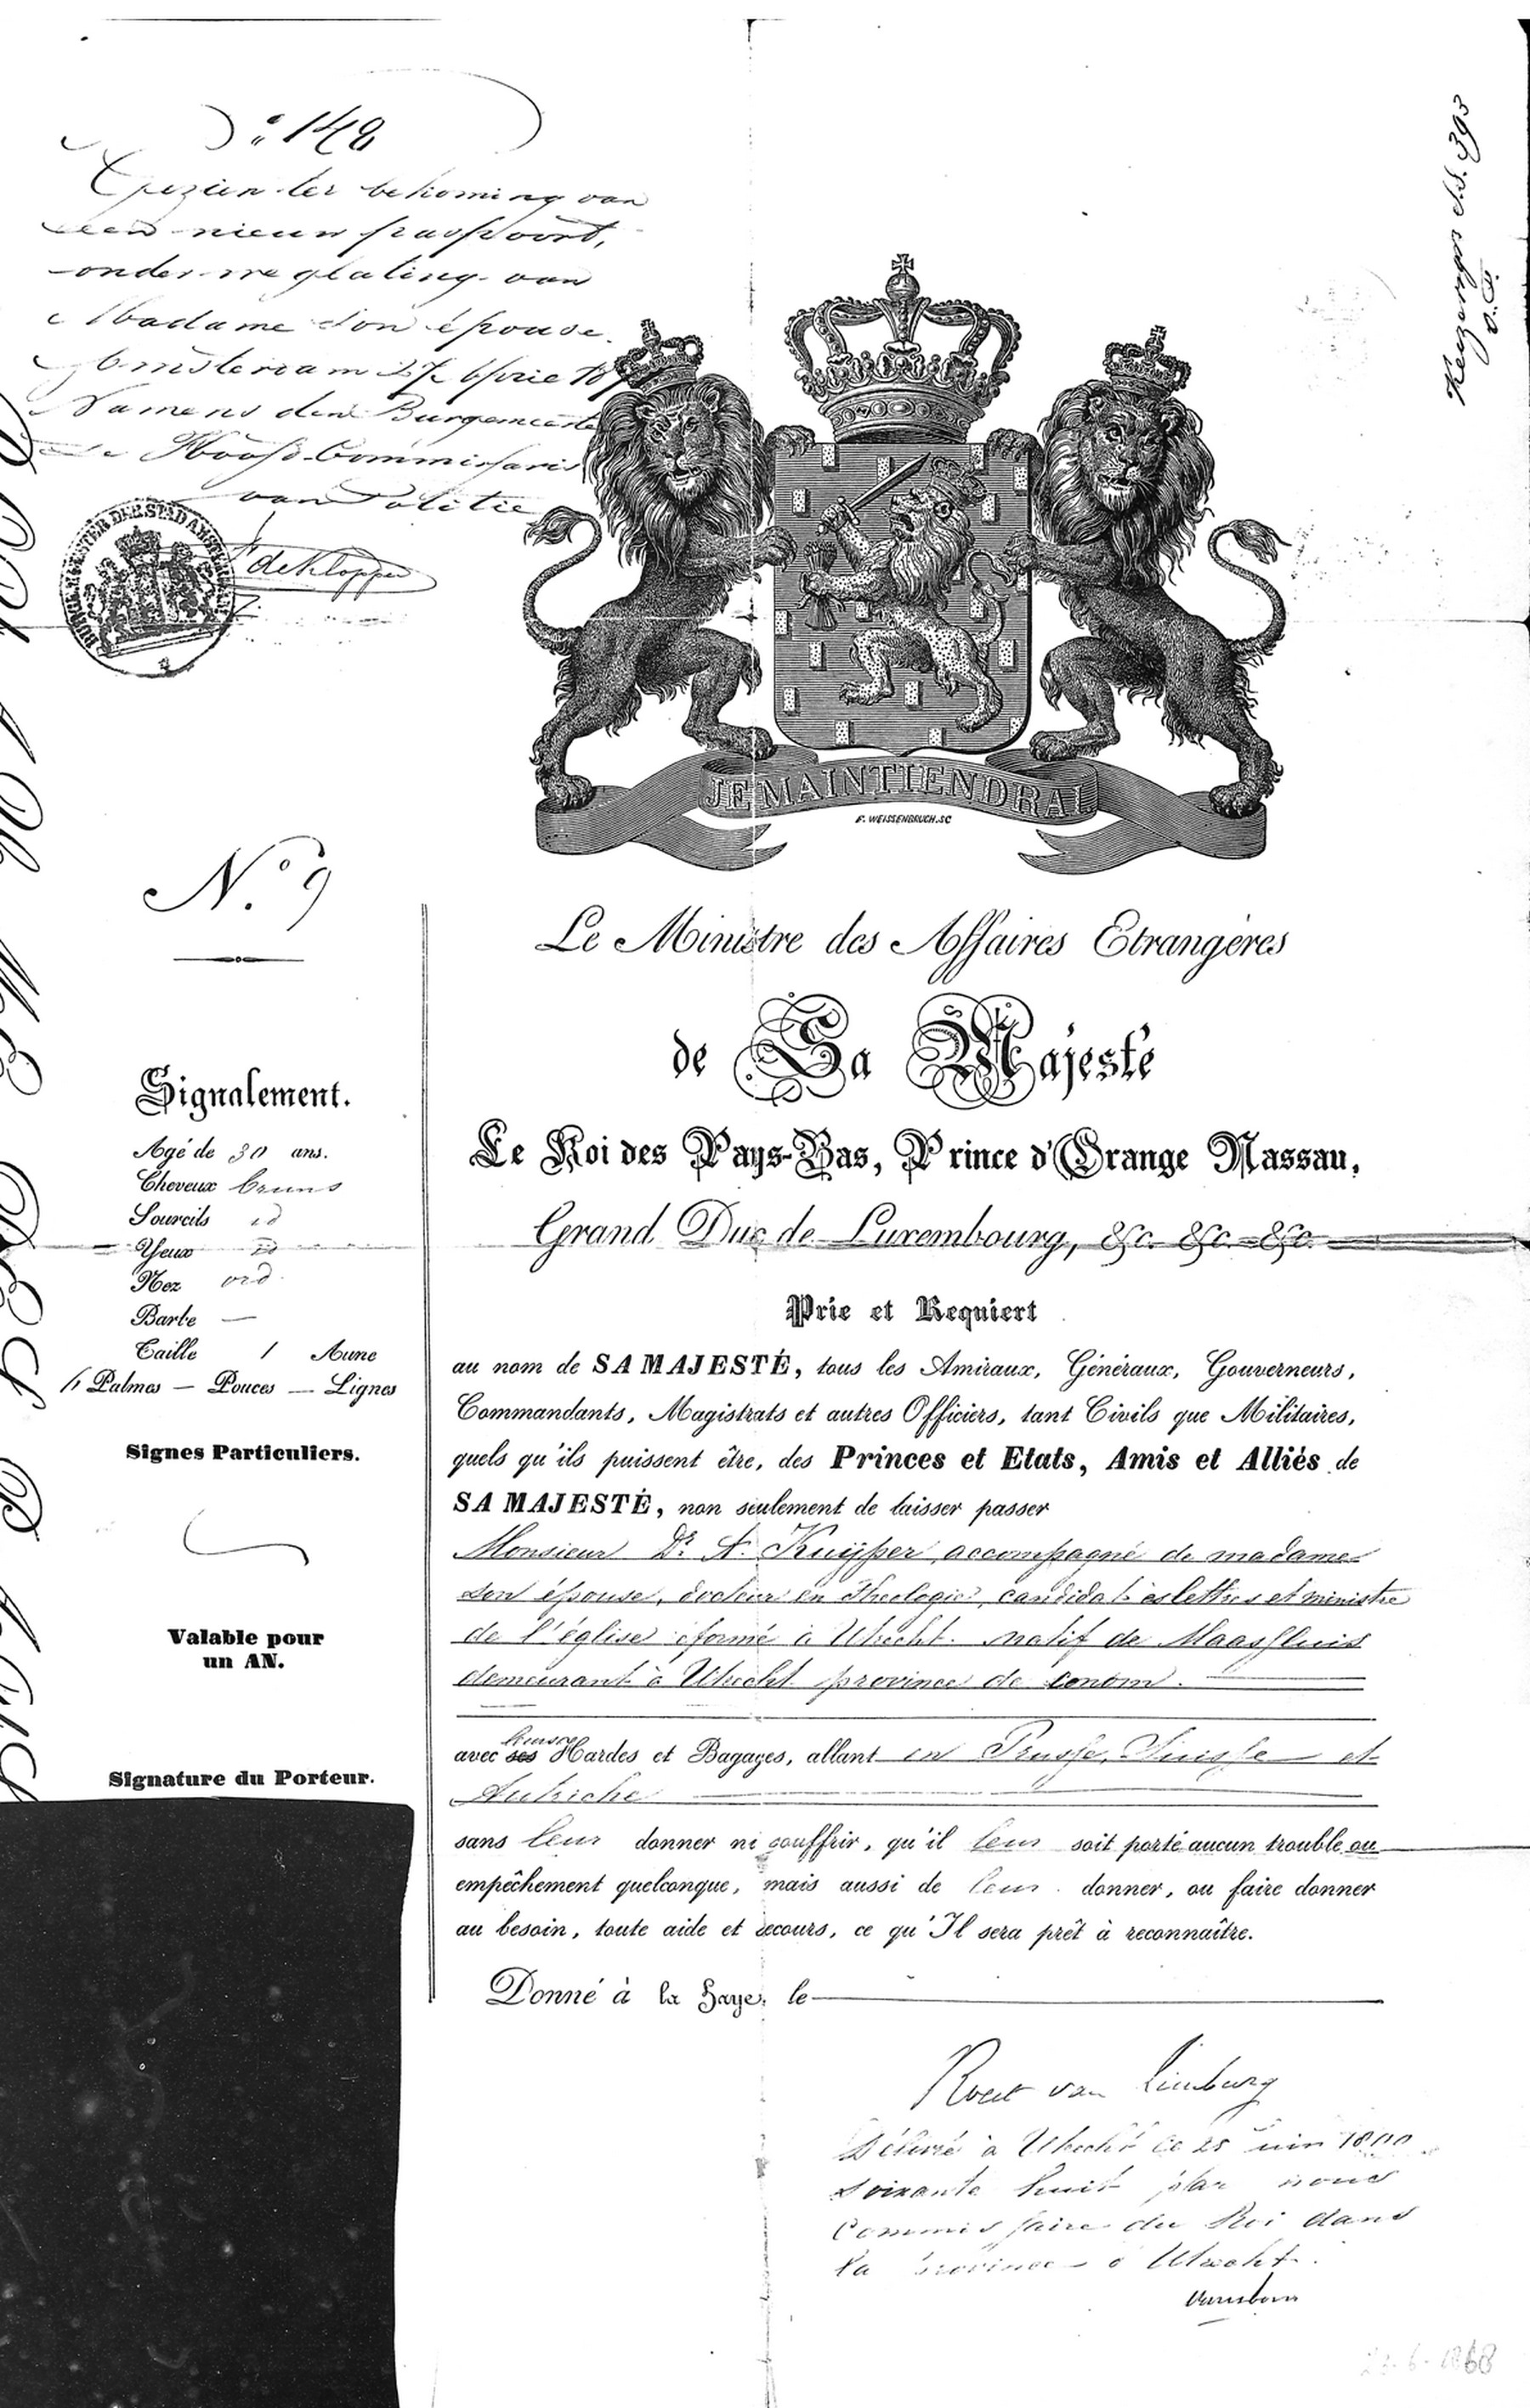 N° 148
Gezien ter bekoming van
een nieuw paspoort,
onder weglating van
Madame son épouse.
Amsterdam 27 April 18
Namens den Burgemeester
de Hoofd-Commissaris
van Politie
de Klopper
BURGEMEESTER DER STAD AMSTERDAM
Keizersgr. S.S. 393
JE MAINTIENDRAI
F. WEISSENBRUCH. SC
N.° 9
Le Ministre des Affaires Etrangères
de Sa Majesté
Le Roi des Pays-Bas, Prince d'Orange Nassau,
Grand Duc de Luxembourg, &c. &c. &c.
Prie et Requiert
au nom de SA MAJESTÉ, tous les Amiraux, Généraux, Gouverneurs,
Commandants, Magistrats et autres Officiers, tant Civils que Militaires,
quels qu'ils puissent être, des Princes et Etats, Amis et Alliés de
SA MAJESTÉ, non seulement de laisser passer
Monsieur Dr. A. Kuijper, accompagné de madame
son épouse, docteur en Theologie, candidat ès lettres et ministre
de l'église réformé à Utrecht. natif de Maassluis
demeurant à Utrecht province de ce nom.
avec ses leurs Hardes et Bagages, allant en Prusse, Suisse et
Autriche
sans leur donner ni souffrir, qu'il leur soit porté aucun trouble ou
empêchement quelconque, mais aussi de leur donner, ou faire donner
au besoin, toute aide et secours, ce qu'Il sera prêt à reconnaître.
Donné à la Haye, le
Roest van Limburg
Délivré à Utrecht le 25 Juin 1800
soixante huit par nous
Commissaire du Roi dans
la province d'Utrecht.
Signalement.
Agé de 30 ans.
Cheveux bruns
Sourcils id
Yeux id
Nez ord.
Barbe —
Taille 1 Aune
6 Palmes — Pouces — Lignes
Signes Particuliers.
Valable pour
un AN.
Signature du Porteur.